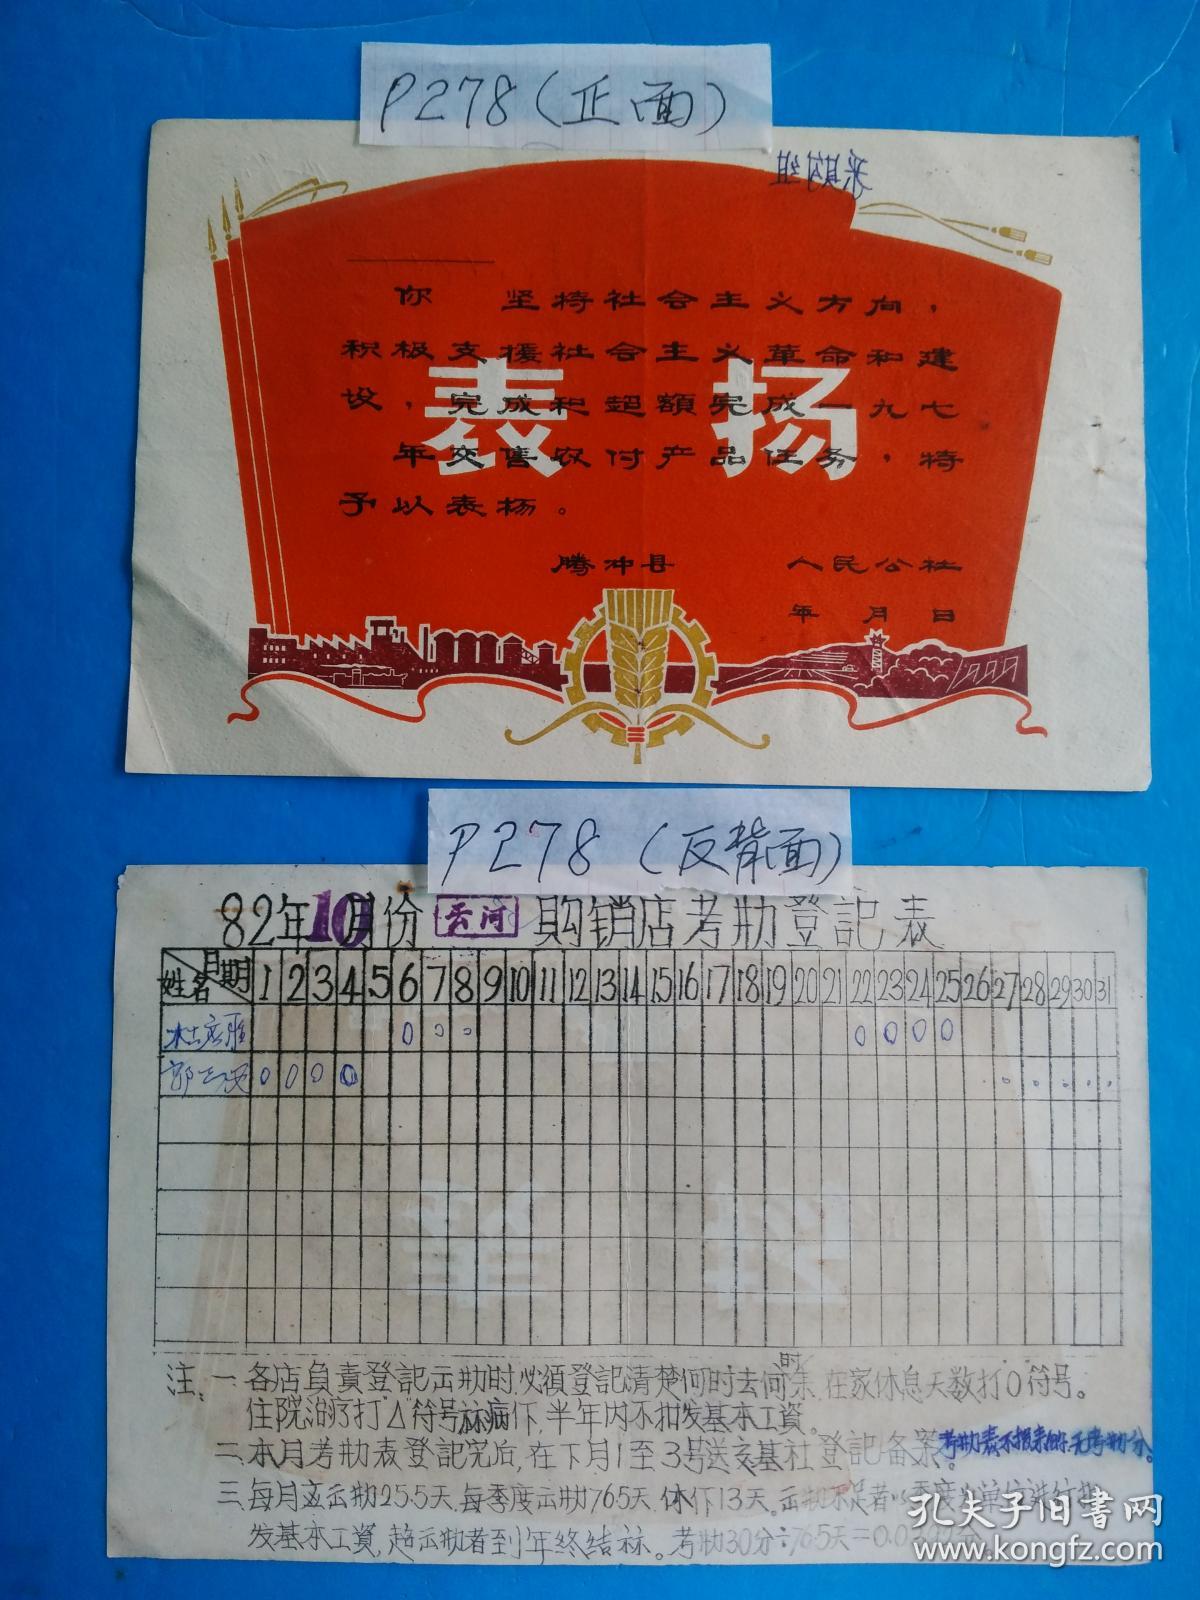 P278（正面）
采购组
你 坚持社会主义方向，
积极支援社会主义革命和建
设，完成和超额完成一九七
年交售农付产品任务，特
予以表杨。
表扬
腾冲县 人民公社
年 月 日
P278（反背面）
82年10月份 云河 购销店考勋登記表
姓名 月期 1 2 3 4 5 6 7 8 9 10 11 12 13 14 15 16 17 18 19 20 21 22 23 24 25 26 27 28 29 30 31
0 0 0 0 0 0 0
郭 0 0 0 0
注：一各店負責登記示勋时必須登記清楚何时去何时来，在家休息天数打0符号。
住院治疗打"△"符号 病仹，半年内不扣发基本工資。
二、本月考勋表登記完后，在下月1至3号送交基社登記备案。考勋表不报来的，无考勋分。
三、每月立示勋25.5天，每季度示勋76.5天，休仹13天。示勋不足者以季度
发基本工資，超示勋者到年终结 。考勋30分÷76.5天=0.0392分
孔夫子旧书网
www.kongfz.com